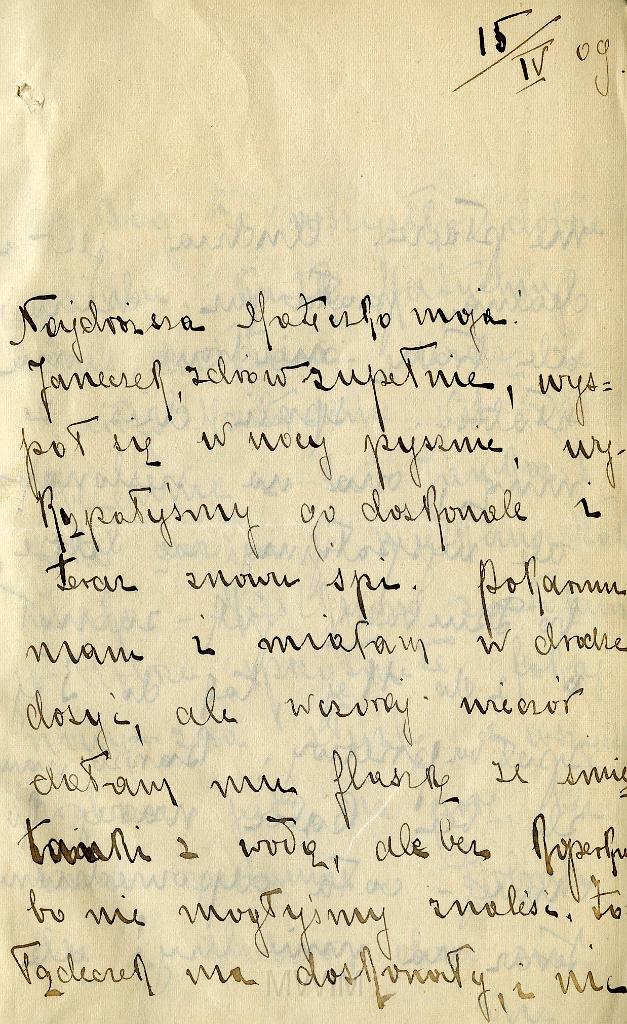 15/IV 09.
Najdroższa Mateczko moja.
Janeczek, zdrów zupełnie, wys=
pał się w nocy pysznie, wy-
kąpałyśmy go doskonale i
teraz znowu śpi. Pokarmu
mam i miałam w drodze
dosyć, ale wczoraj wieczór
dałam mu flaszkę ze śmie
tanki z wodą, ale bez koperku
bo nie mogłyśmy znaleść. Żo
łądeczek ma doskonały, i nic